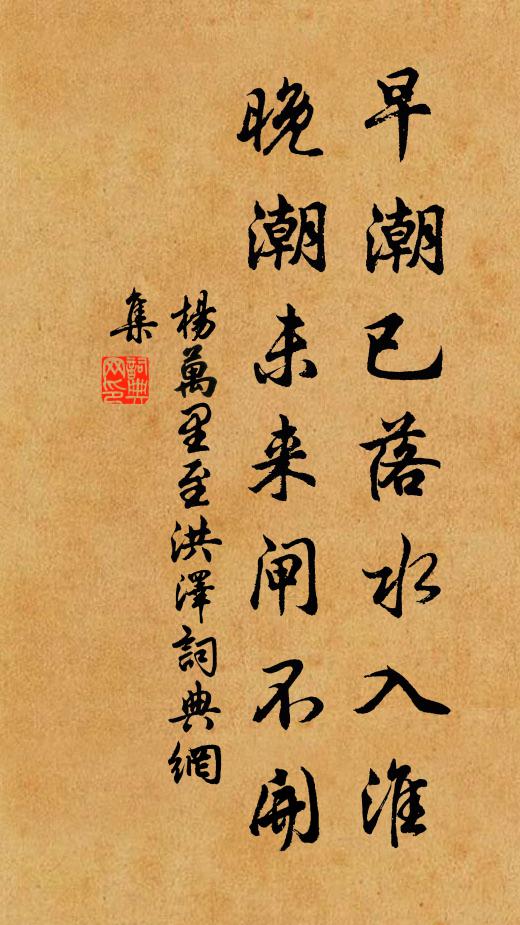 早潮已落水入淮
晚潮未来闸不开
楊萬里至洪澤詞典網
集
詞典网印